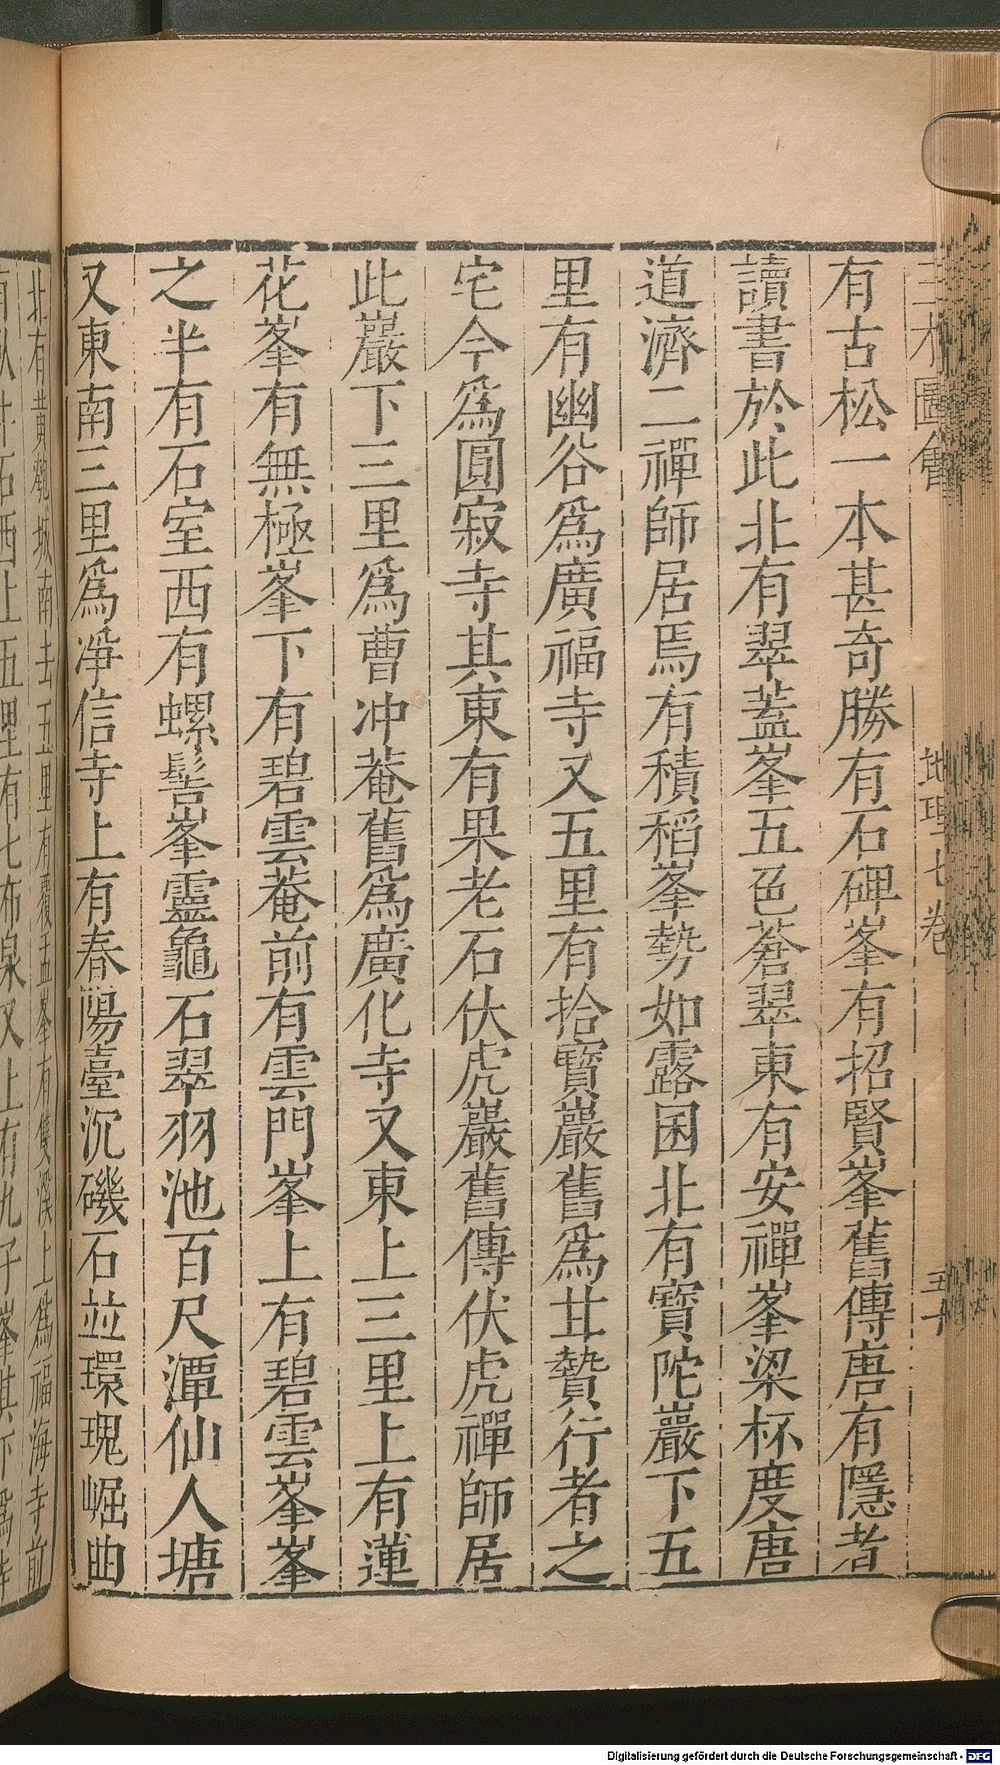 三才圖會
地理七卷
五十
有古松一本甚奇勝有石碑峯有招賢峯舊傳唐有隱者
讀書於此北有翠蓋峯五色蒼翠東有安禪峯梁杯度唐
道濟二禪師居焉有積稻峯勢如露囷北有寶陀巖下五
里有幽谷爲廣福寺又五里有拾寶巖舊爲甘贄行者之
宅今爲圓寂寺其東有果老石伏虎巖舊傳伏虎禪師居
此巖下三里爲曹冲菴舊爲廣化寺又東上三里上有蓮
花峯有無極峯下有碧雲菴前有雲門峯上有碧雲峯峯
之半有石室西有螺髻峯靈龜石翠羽池百尺潭仙人塘
又東南三里爲淨信寺上有春陽臺沉磯石竝環瑰崛曲
北有黃 城南去五里有覆盂峯有雙溪上爲福海寺前
石西上五里有七布泉又上有九子峯其下爲
Digitalisierung gefördert durch die Deutsche Forschungsgemeinschaft - DFG